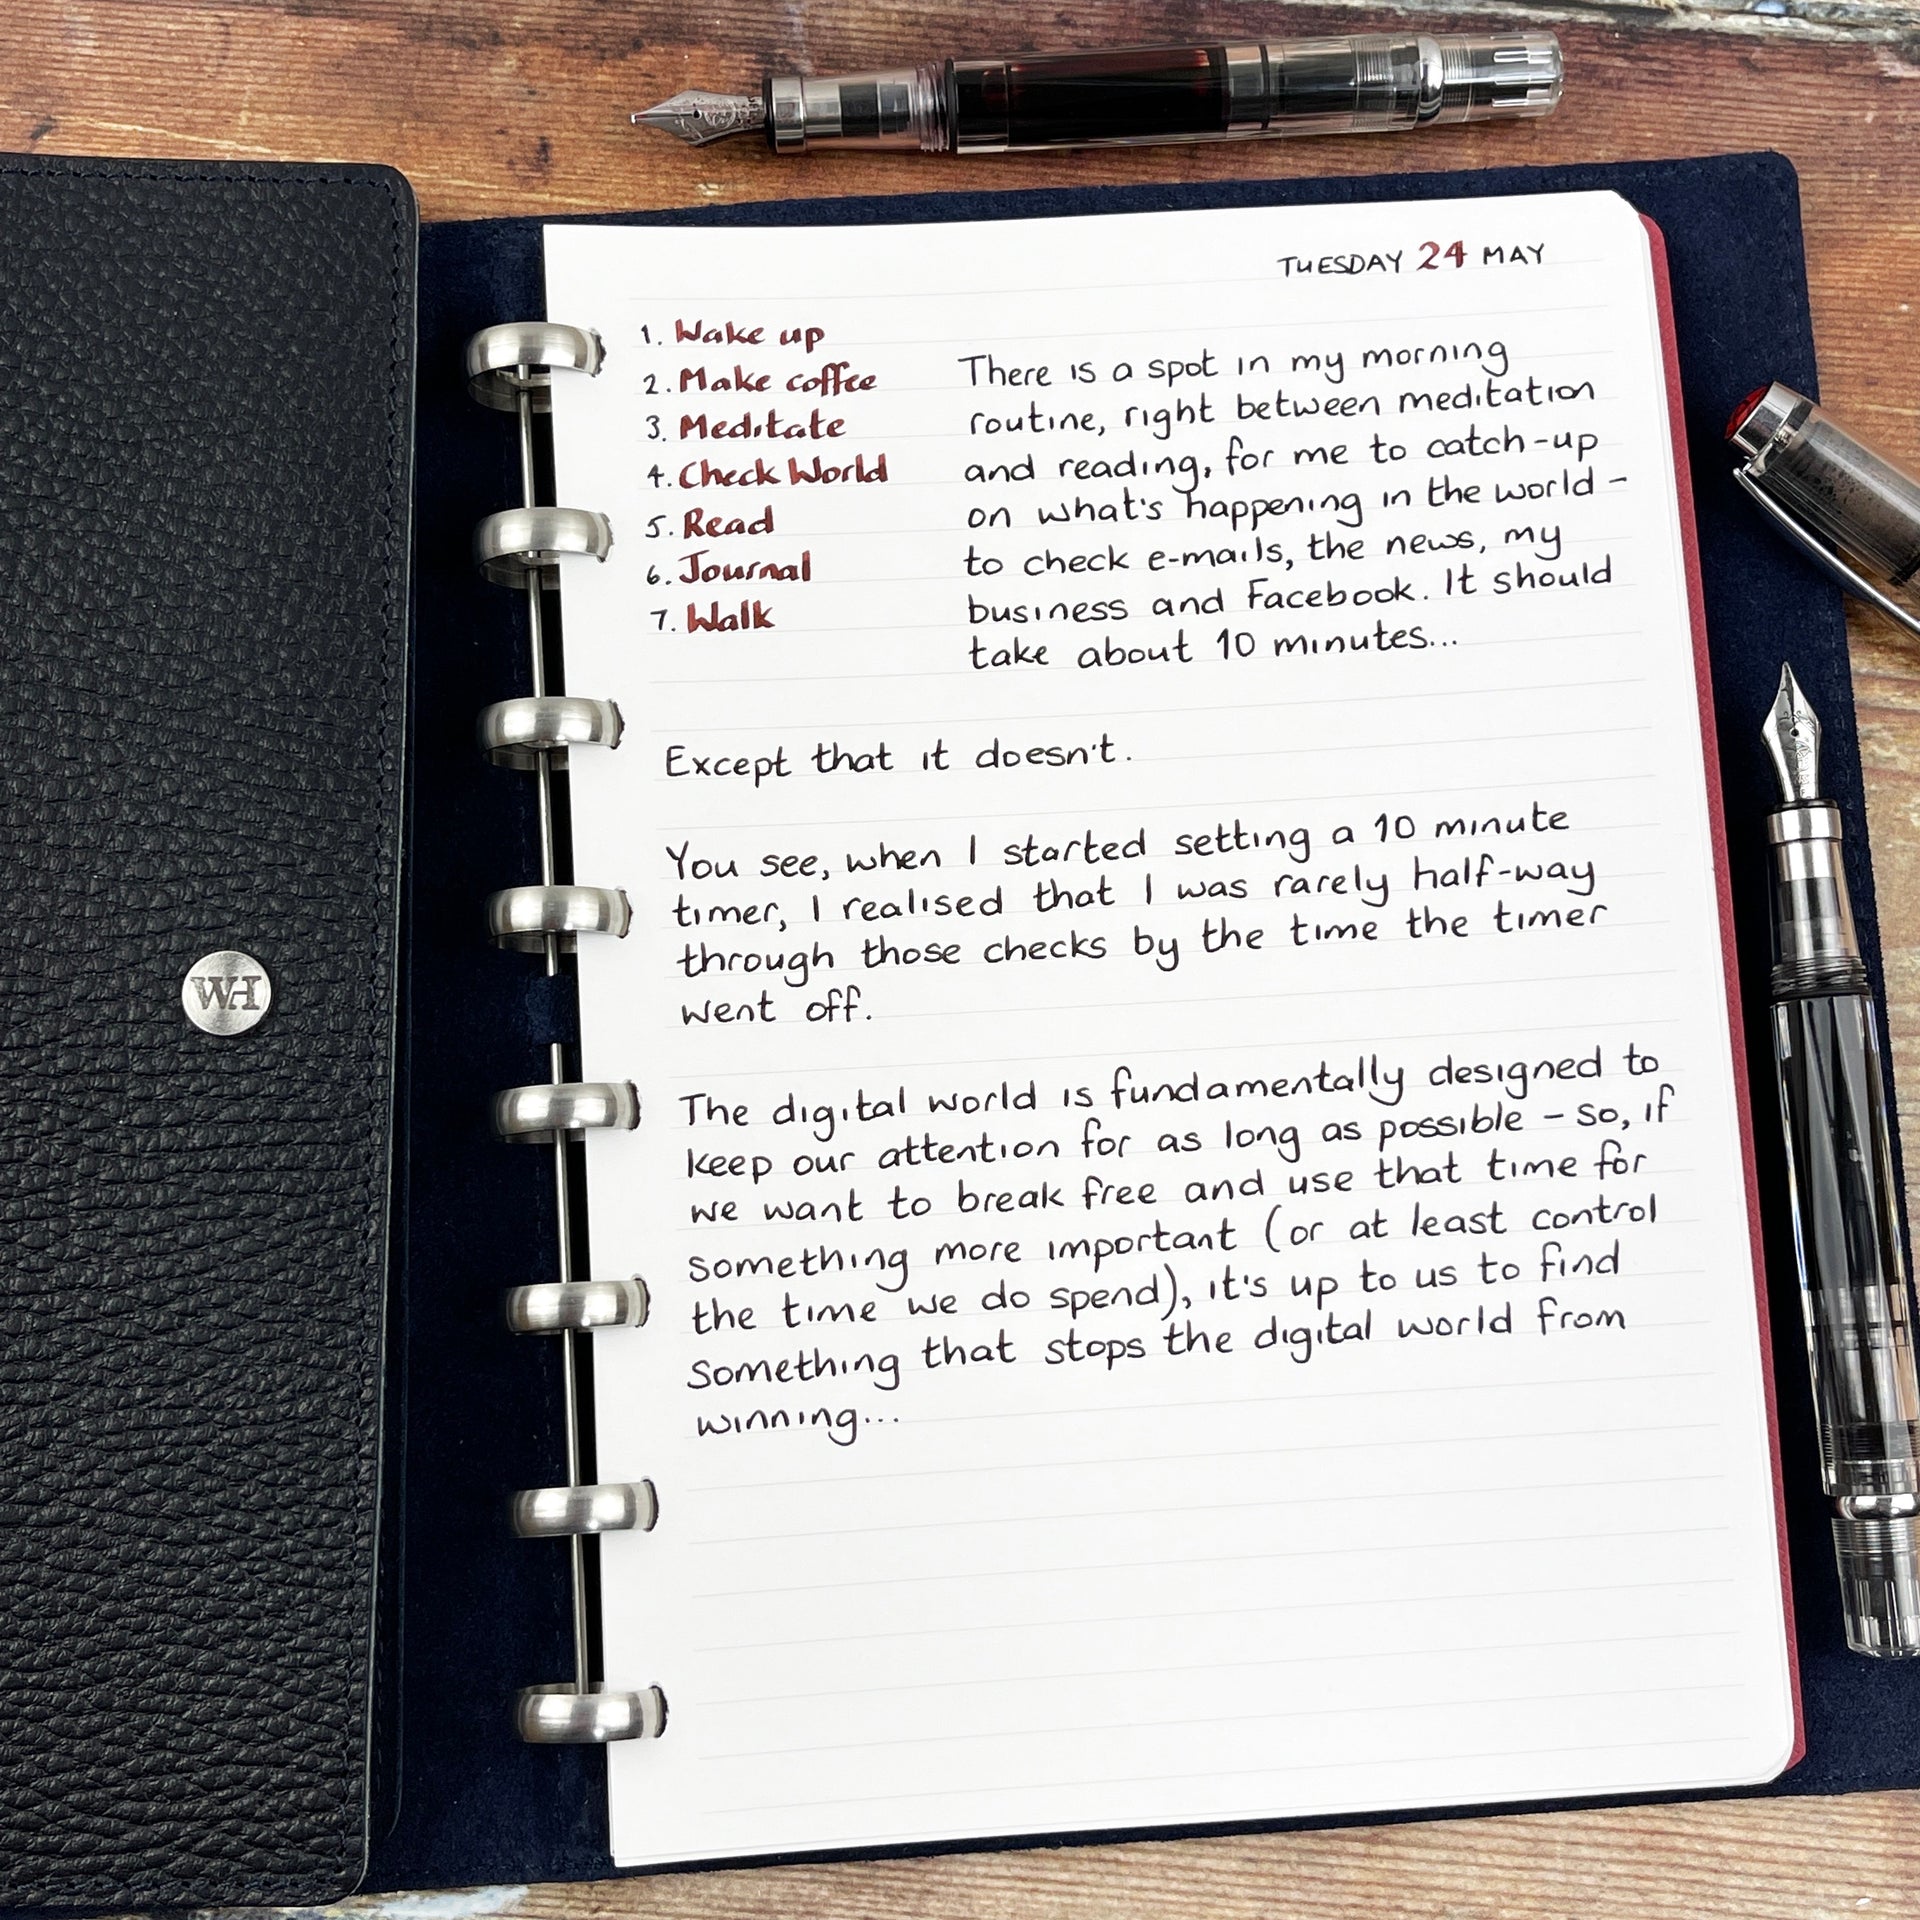 TUESDAY 24 MAY
1. Wake up
2. Make coffee
3. Meditate
4. Check World
5. Read
6. Journal
7. Walk
There is a spot in my morning
routine, right between meditation
and reading, for me to catch-up
on what's happening in the world -
to check e-mails, the news, my
business and Facebook. It should
take about 10 minutes...
Except that it doesn't.
You see, when I started setting a 10 minute
timer, I realised that I was rarely half-way
through those checks by the time the timer
went off.
The digital world is fundamentally designed to
keep our attention for as long as possible - so, if
we want to break free and use that time for
something more important (or at least control
the time we do spend), it's up to us to find
something that stops the digital world from
winning...
WH